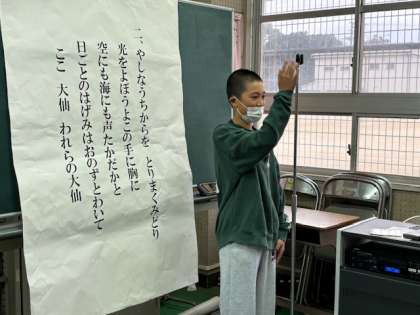 二、やしなうちからを　とりまくみどり
光をよほうよこの手に胸に
空にも海にも声たかだかと
日ごとのはげみはおのずとわいて
ここ　大仙　われらの大仙